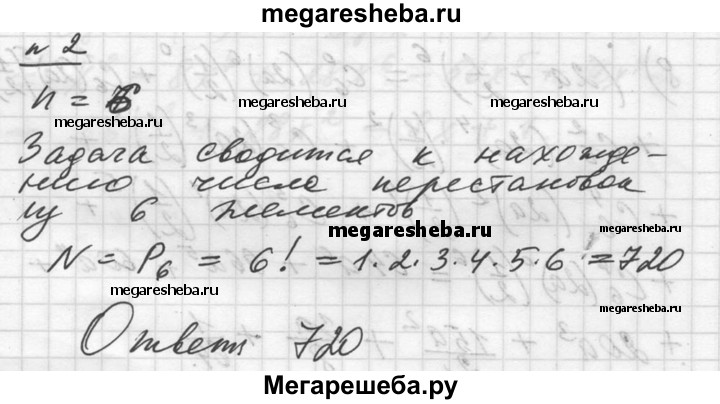 megaresheba.ru
№ 2
n = 6
megaresheba.ru megaresheba.ru
megaresheba.ru
Задача сводится к нахожде-
нию числа перестановок
из 6 элементов
megaresheba.ru
N = P₆ = 6! = 1·2·3·4·5·6 = 720
megaresheba.ru megaresheba.ru
Ответ: 720
Мегарешеба.ру